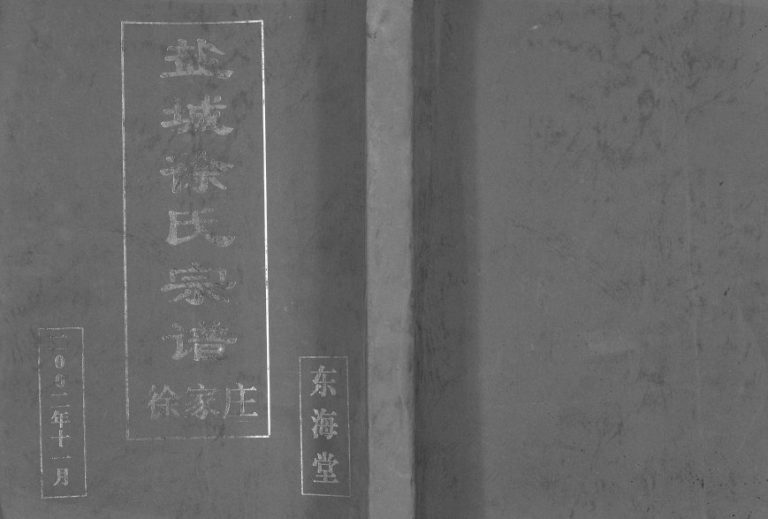 盐城徐氏宗谱
徐家庄
东海堂
二00二年十一月